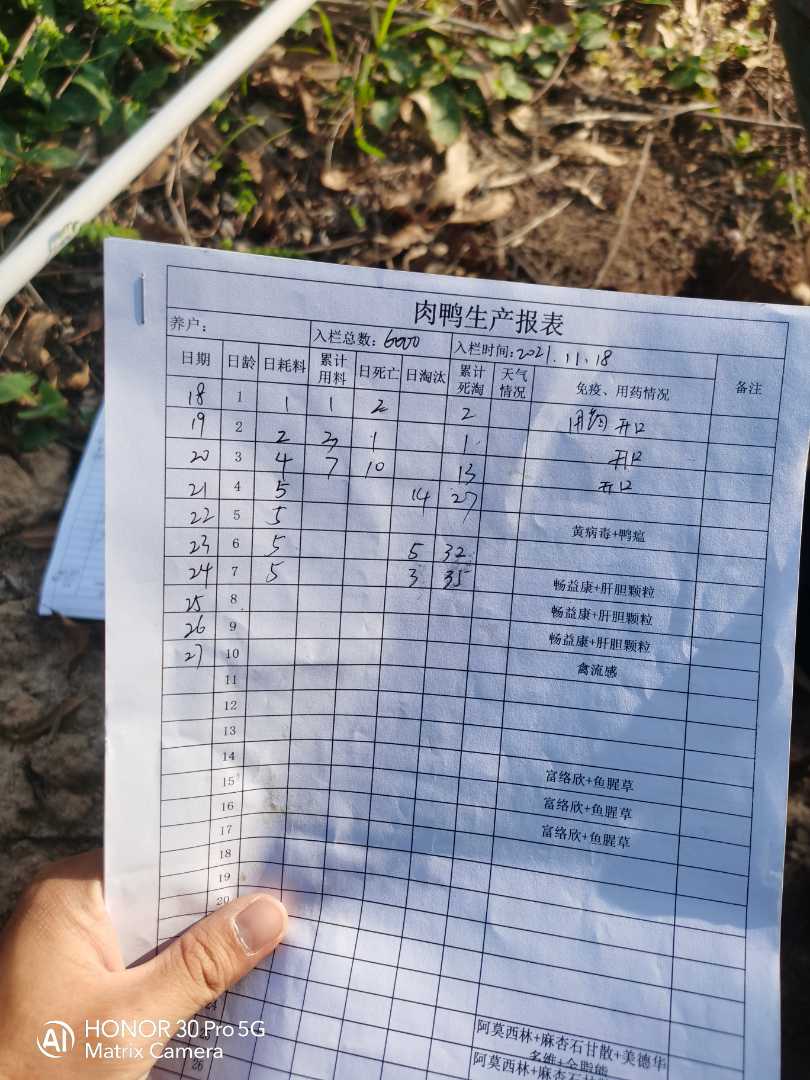 肉鸭生产报表
养户: 入栏总数: 6000 入栏时间: 2021.11.18
日期 日龄 日耗料 累计用料 日死亡 日淘汰 累计死淘 天气情况 免疫、用药情况 备注
18 1 1 1 2 2 开口
19 2 2 3 1 1 开口
20 3 4 7 10 13 开口
21 4 5 14 27
22 5 5 黄病毒+鸭瘟
23 6 5 5 32
24 7 5 3 35 畅益康+肝胆颗粒
25 8 畅益康+肝胆颗粒
26 9 畅益康+肝胆颗粒
27 10 禽流感
11
12
13
14
15 富络欣+鱼腥草
16 富络欣+鱼腥草
17 富络欣+鱼腥草
18
19
20
阿莫西林+麻杏石甘散+美德华
多维+全脂能
26 阿莫西林+麻杏石甘散
HONOR 30 Pro 5G
Matrix Camera